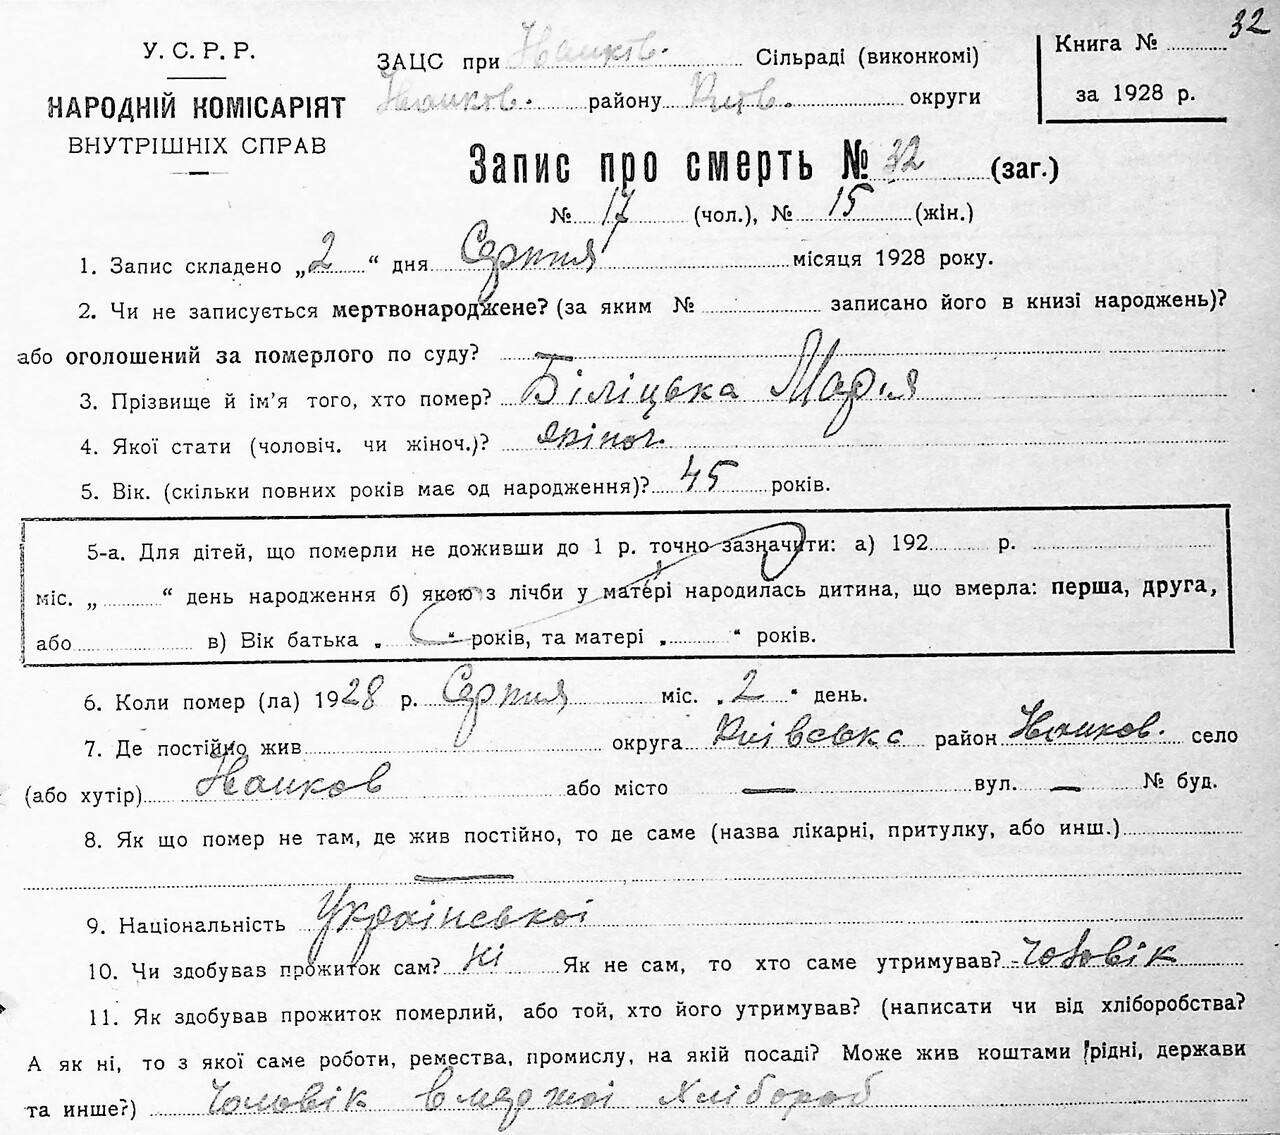 32
У.С.Р.Р.
НАРОДНІЙ КОМІСАРІЯТ
ВНУТРІШНІХ СПРАВ
ЗАЦС при Сільраді (виконкомі)
району Київ. округи
Книга №
за 1928 р.
Запис про смерть № 32 (заг.)
№ 17 (чол.), № 15 (жін.)
1. Запис складено „2“ дня Серпня місяця 1928 року.
2. Чи не записується мертвонароджене? (за яким № записано його в книзі народжень)?
або оголошений за померлого по суду? —
3. Прізвище й ім'я того, хто помер? Біліцька Марія
4. Якої стати (чоловіч. чи жіноч.)? жіноч.
5. Вік. (скільки повних років має од народження)? 45 років.
5-а. Для дітей, що померли не доживши до 1 р. точно зазначити: а) 192 р.
міс. „ “ день народження б) якою з лічби у матері народилась дитина, що вмерла: перша, друга,
або в) Вік батька „ “ років, та матері „ “ років.
6. Коли помер (ла) 1928 р. Серпня міс. „2“ день.
7. Де постійно жив округа Київська район село
(або хутір) або місто — вул. — № буд.
8. Як що помер не там, де жив постійно, то де саме (назва лікарні, притулку, або инш.)
—
9. Національність Української
10. Чи здобував прожиток сам? Ні Як не сам, то хто саме утримував? Чоловік
11. Як здобував прожиток померлий, або той, хто його утримував? (написати чи від хліборобства?
А як ні, то з якої саме роботи, ремества, промислу, на якій посаді? Може жив коштами рідні, держави
та инше?) Чоловік вмерлої Хлібороб